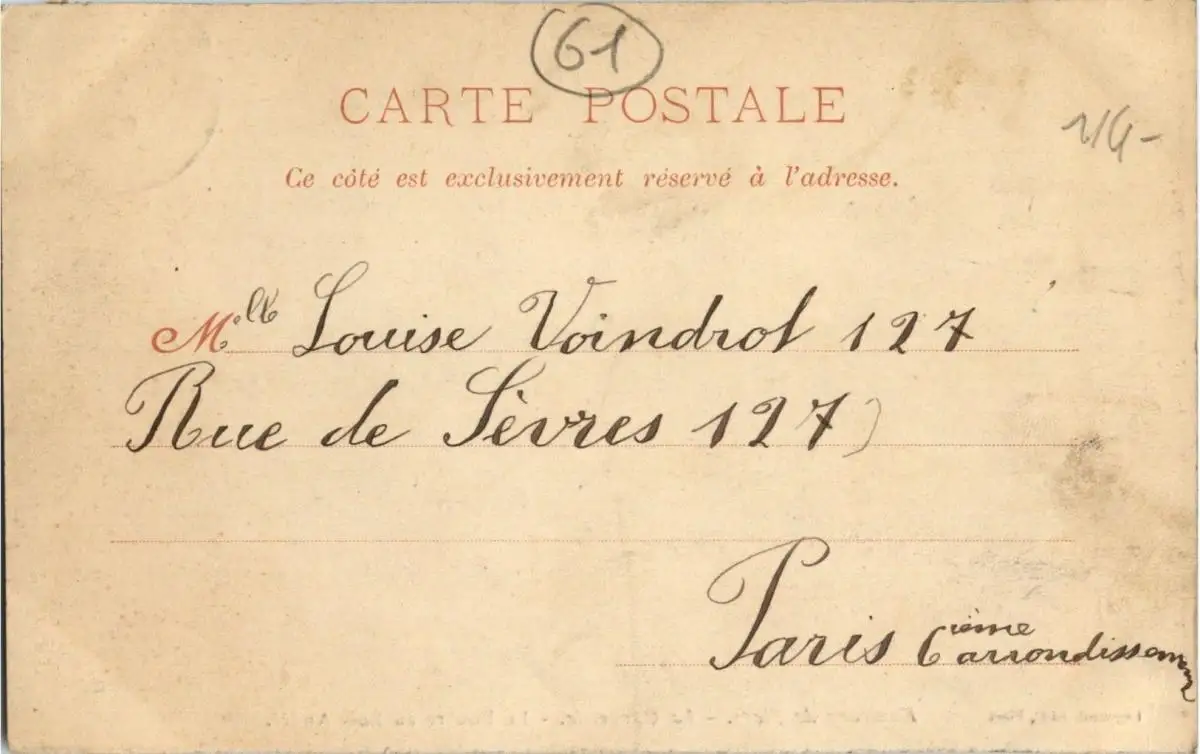 61
CARTE POSTALE
Ce côté est exclusivement réservé à l'adresse.
Mlle Louise Voindrot 127
Rue de Sèvres 127)
Paris 6ième arrondissem